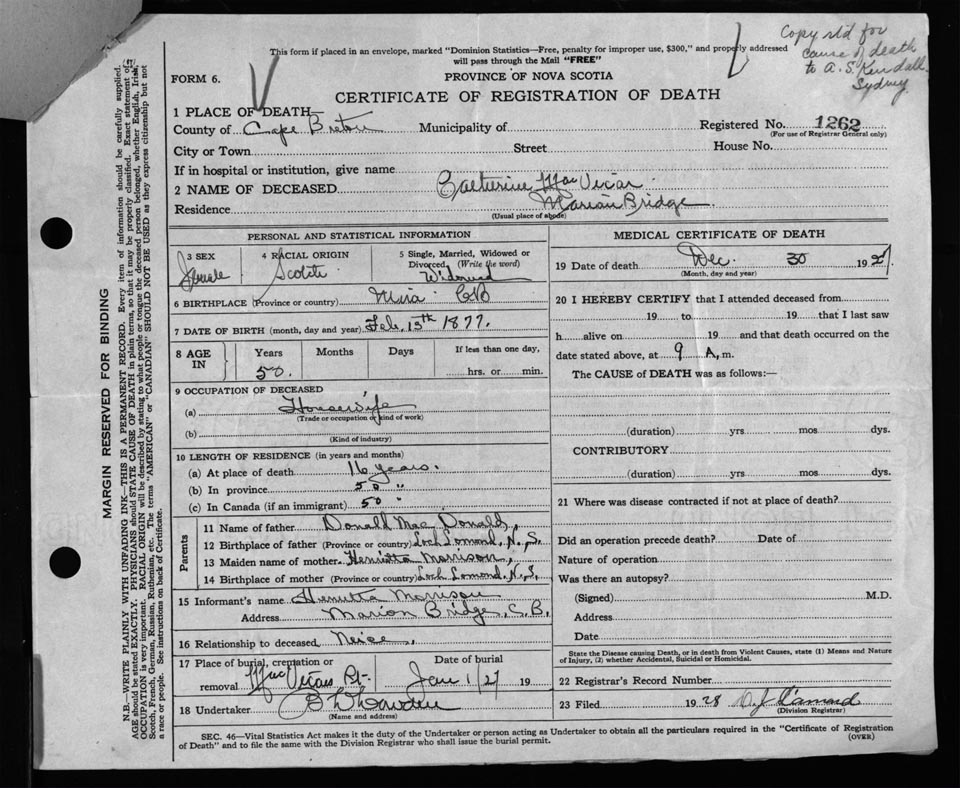 Copy st'd for
cause of death
to A. S. Kendall
Sydney
This form if placed in an envelope, marked "Dominion Statistics—Free, penalty for improper use, $300," and properly addressed
will pass through the Mail "FREE"
FORM 6.
PROVINCE OF NOVA SCOTIA
CERTIFICATE OF REGISTRATION OF DEATH
1 PLACE OF DEATH—
County of Cape Breton Municipality of Registered No. 1262
(For use of Registrar General only)
City or Town Street House No.
If in hospital or institution, give name
2 NAME OF DECEASED Catherine MacVicar
Residence Marion Bridge
(Usual place of abode)
PERSONAL AND STATISTICAL INFORMATION
3 SEX 4 RACIAL ORIGIN 5 Single, Married, Widowed or
Divorced, (Write the word)
Female Scotch Widowed
6 BIRTHPLACE (Province or country) Mira CB
7 DATE OF BIRTH (month, day and year) Feb. 15th 1877.
8 AGE IN Years Months Days If less than one day,
50. hrs. or min.
9 OCCUPATION OF DECEASED
(a) Housewife
(Trade or occupation or kind of work)
(b)
(Kind of industry)
10 LENGTH OF RESIDENCE (in years and months)
(a) At place of death 16 years.
(b) In province 50 "
(c) In Canada (if an immigrant) 50 "
Parents
11 Name of father Donald MacDonald,
12 Birthplace of father (Province or country) Loch Lomond, N. S.
13 Maiden name of mother Henrietta Morrison,
14 Birthplace of mother (Province or country) Loch Lomond, N. S,
15 Informant's name Henrietta Morrison
Address Marion Bridge, C. B.
16 Relationship to deceased Neice,
17 Place of burial, cremation or Date of burial
removal MacVicars Pt. Jan 1/27 19
18 Undertaker
(Name and address)
MEDICAL CERTIFICATE OF DEATH
19 Date of death Dec. 30 1927
(Month, day and year)
20 I HEREBY CERTIFY that I attended deceased from
19 to 19 that I last saw
h alive on 19 and that death occurred on the
date stated above, at 9 A. m.
The CAUSE of DEATH was as follows:—
(duration) yrs. mos. dys.
CONTRIBUTORY
(duration) yrs mos dys.
21 Where was disease contracted if not at place of death?
Did an operation precede death? Date of
Nature of operation
Was there an autopsy?
(Signed) M.D.
Address
Date
State the Disease causing Death, or in death from Violent Causes, state (1) Means and Nature
of Injury, (2) whether Accidental, Suicidal or Homicidal.
22 Registrar's Record Number
23 Filed 1928
(Division Registrar)
SEC. 46—Vital Statistics Act makes it the duty of the Undertaker or person acting as Undertaker to obtain all the particulars required in the "Certificate of Registration
of Death" and to file the same with the Division Registrar who shall issue the burial permit.
(OVER)
MARGIN RESERVED FOR BINDING
N.B.—WRITE PLAINLY WITH UNFADING INK—THIS IS A PERMANENT RECORD. Every item of information should be carefully supplied.
AGE should be stated EXACTLY. PHYSICIANS should STATE CAUSE OF DEATH in plain terms, so that it may be properly classified. Exact statement of
OCCUPATION is very important. RACIAL ORIGIN will be described by stating to what people or tongue the deceased person belonged, whether English, Irish,
Scotch, French, German, Russian, Ruthenian, etc. The terms "AMERICAN" or "CANADIAN" SHOULD NOT BE USED as they express citizenship but not
a race or people. See instructions on back of Certificate.